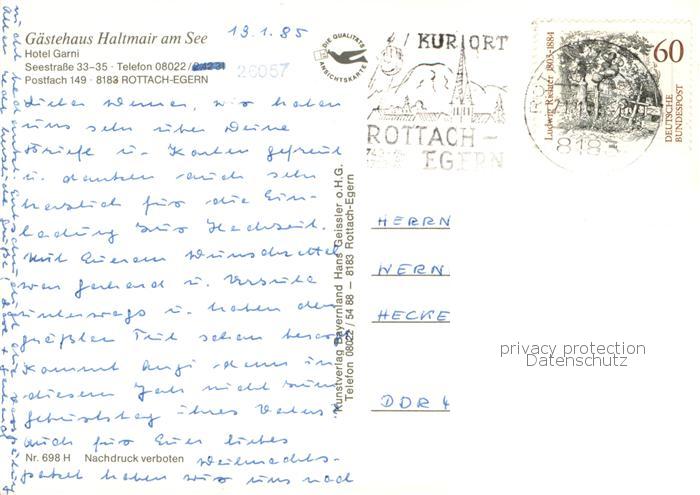 Gästehaus Haltmair am See
Hotel Garni
Seestraße 33-35 · Telefon 08022/
26057
Postfach 149 · 8183 ROTTACH-EGERN
13.1.85
DIE QUALITÄTS
ANSICHTSKARTE
KURORT
ROTTACH-
EGERN
Ludwig Richter 1803-1884
60
DEUTSCHE
BUNDESPOST
818
Lieber Werner, wir haben
uns sehr über Deine
Briefe u. Karten gefreut
u. danken auch sehr
herzlich für die Ein-
ladung zur Hochzeit.
Mit Eurem Wunschzettel
war Gerhard u. Ursula
unterwegs u. haben den
größten Teil schon besorgt
kommt dann in
diesem Jahr nicht zum
Geburtstag ihres Vaters.
Auch für Euer liebes
Weihnachts-
paket haben wir uns noch
Kunstverlag Bayernland Hans Geissler o.H.G.
Telefon 08022 / 54 88 – 8183 Rottach-Egern
HERRN
WERN
HECKE
DDR 4
privacy protection
Datenschutz
Nr. 698 H Nachdruck verboten